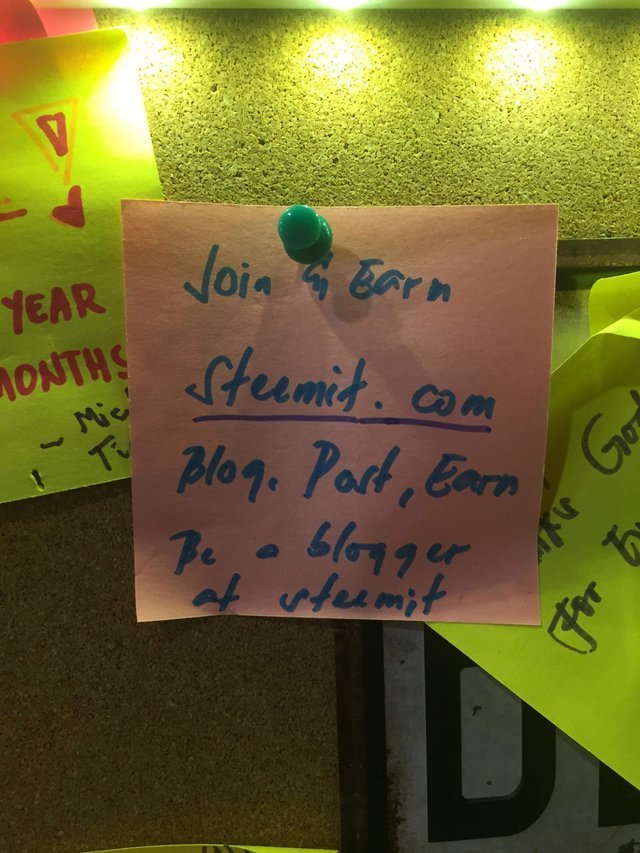 YEAR
MONTHS
Join & Earn
Steemit.com
Blog. Post, Earn
Be a blogger
at steemit
For